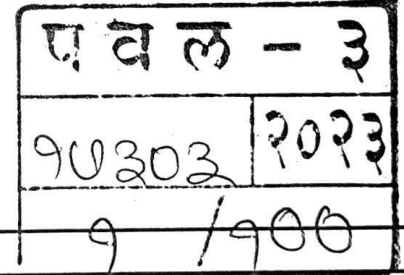 पवल - ३
१७३०३ २०२३
१ /१००